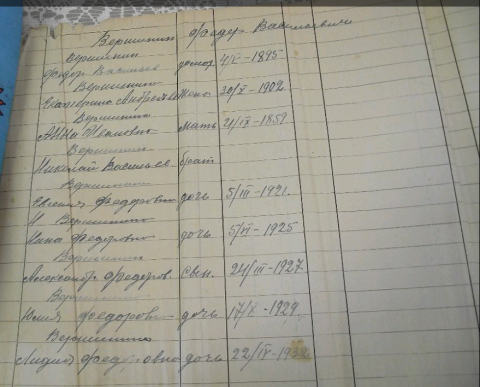 Вершинин Федор Васильевич
Вершинин
Федор Василье домох 4/ -1895
Вершинина
Екатерина Андреевна жена 30/X-1902
Вершинина
Анна Ивановна Мать 21/IX-1859
Вершинин
Николай Васильев. брат
Вершинина
Евгения Федоровна дочь 5/III-1921.
Вершинина
Нина Федоровна дочь 5/VI-1925
Вершинин
Александр Федоров. Сын. 24/III-1927.
Вершинина
Юлия Федоровна дочь 17/X-1929.
Вершинина
Лидия Федоровна дочь 22/IV-1932